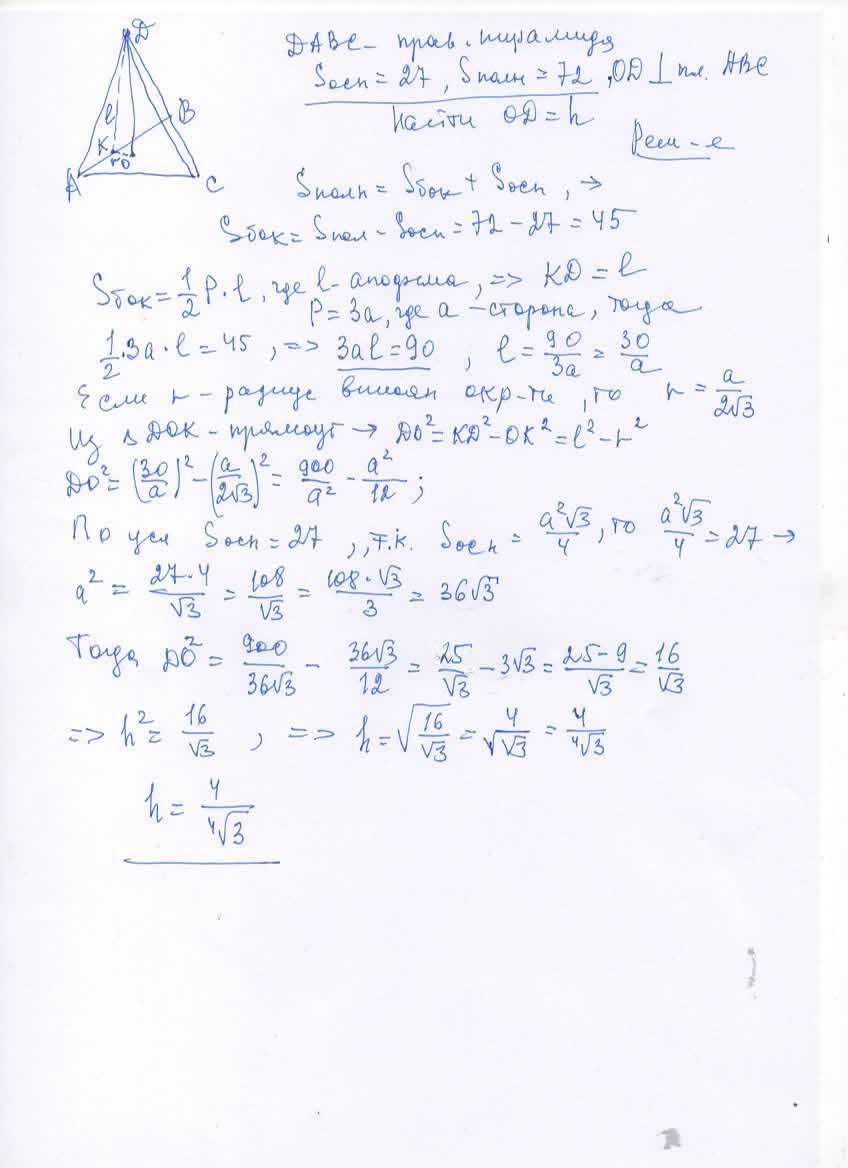 DABC - прав. пирамида
Sосн = 27, Sполн = 72, OD ⊥ пл. ABC
Найти OD = h
Реш-е
D
l
B
K
r
O
A
C
Sполн = Sбок + Sосн, →
Sбок = Sпол - Sосн = 72 - 27 = 45
Sбок = 1/2 P · l, где l - апофема, => KD = l
P = 3a, где a - сторона, тогда
1/2 · 3a · l = 45, => 3al = 90, l = 90/3a = 30/a
Если r - радиус вписан окр-ти, то r = a/2√3
Из Δ DOK - прямоуг → DO² = KD² - OK² = l² - r²
DO² = (30/a)² - (a/2√3)² = 900/a² - a²/12;
По усл Sосн = 27, т.к. Sосн = a²√3/4, то a²√3/4 = 27 →
a² = 27·4/√3 = 108/√3 = 108·√3/3 = 36√3
Тогда DO² = 900/36√3 - 36√3/12 = 25/√3 - 3√3 = 25-9/√3 = 16/√3
=> h² = 16/√3, => h = √(16/√3) = 4/√√3 = 4/⁴√3
h = 4/⁴√3